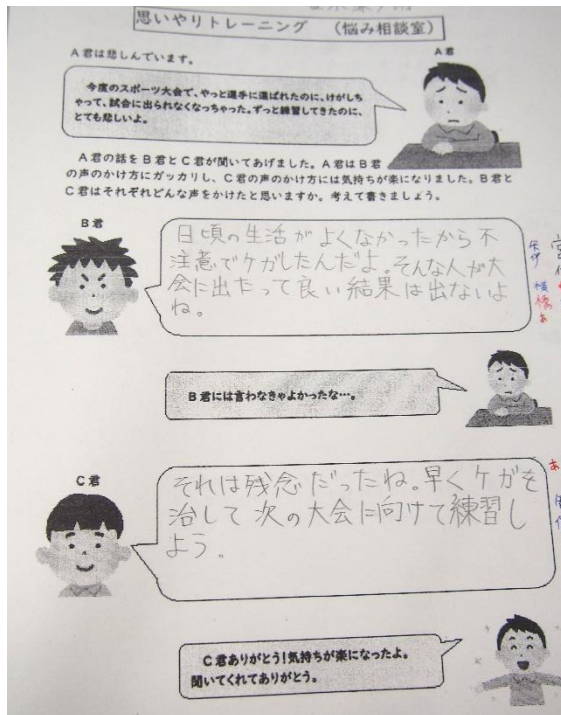 思いやりトレーニング　（悩み相談室）
A君は悲しんでいます。
A君
今度のスポーツ大会で、やっと選手に選ばれたのに、けがしち
ゃって、試合に出られなくなっちゃった。ずっと練習してきたのに、
とても悲しいよ。
A君の話をB君とC君が聞いてあげました。A君はB君
の声のかけ方にガッカリし、C君の声のかけ方には気持ちが楽になりました。B君と
C君はそれぞれどんな声をかけたと思いますか。考えて書きましょう。
B君
日頃の生活がよくなかったから不
注意でケガしたんだよ。そんな人が大
会に出たって良い結果は出ないよ
ね。
B君には言わなきゃよかったな…。
C君
それは残念だったね。早くケガを
治して次の大会に向けて練習し
よう。
C君ありがとう！気持ちが楽になったよ。
聞いてくれてありがとう。